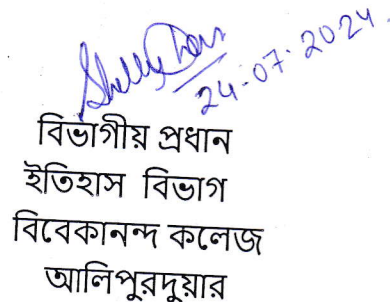 24-07-2024
বিভাগীয় প্রধান
ইতিহাস বিভাগ
বিবেকানন্দ কলেজ
আলিপুরদুয়ার